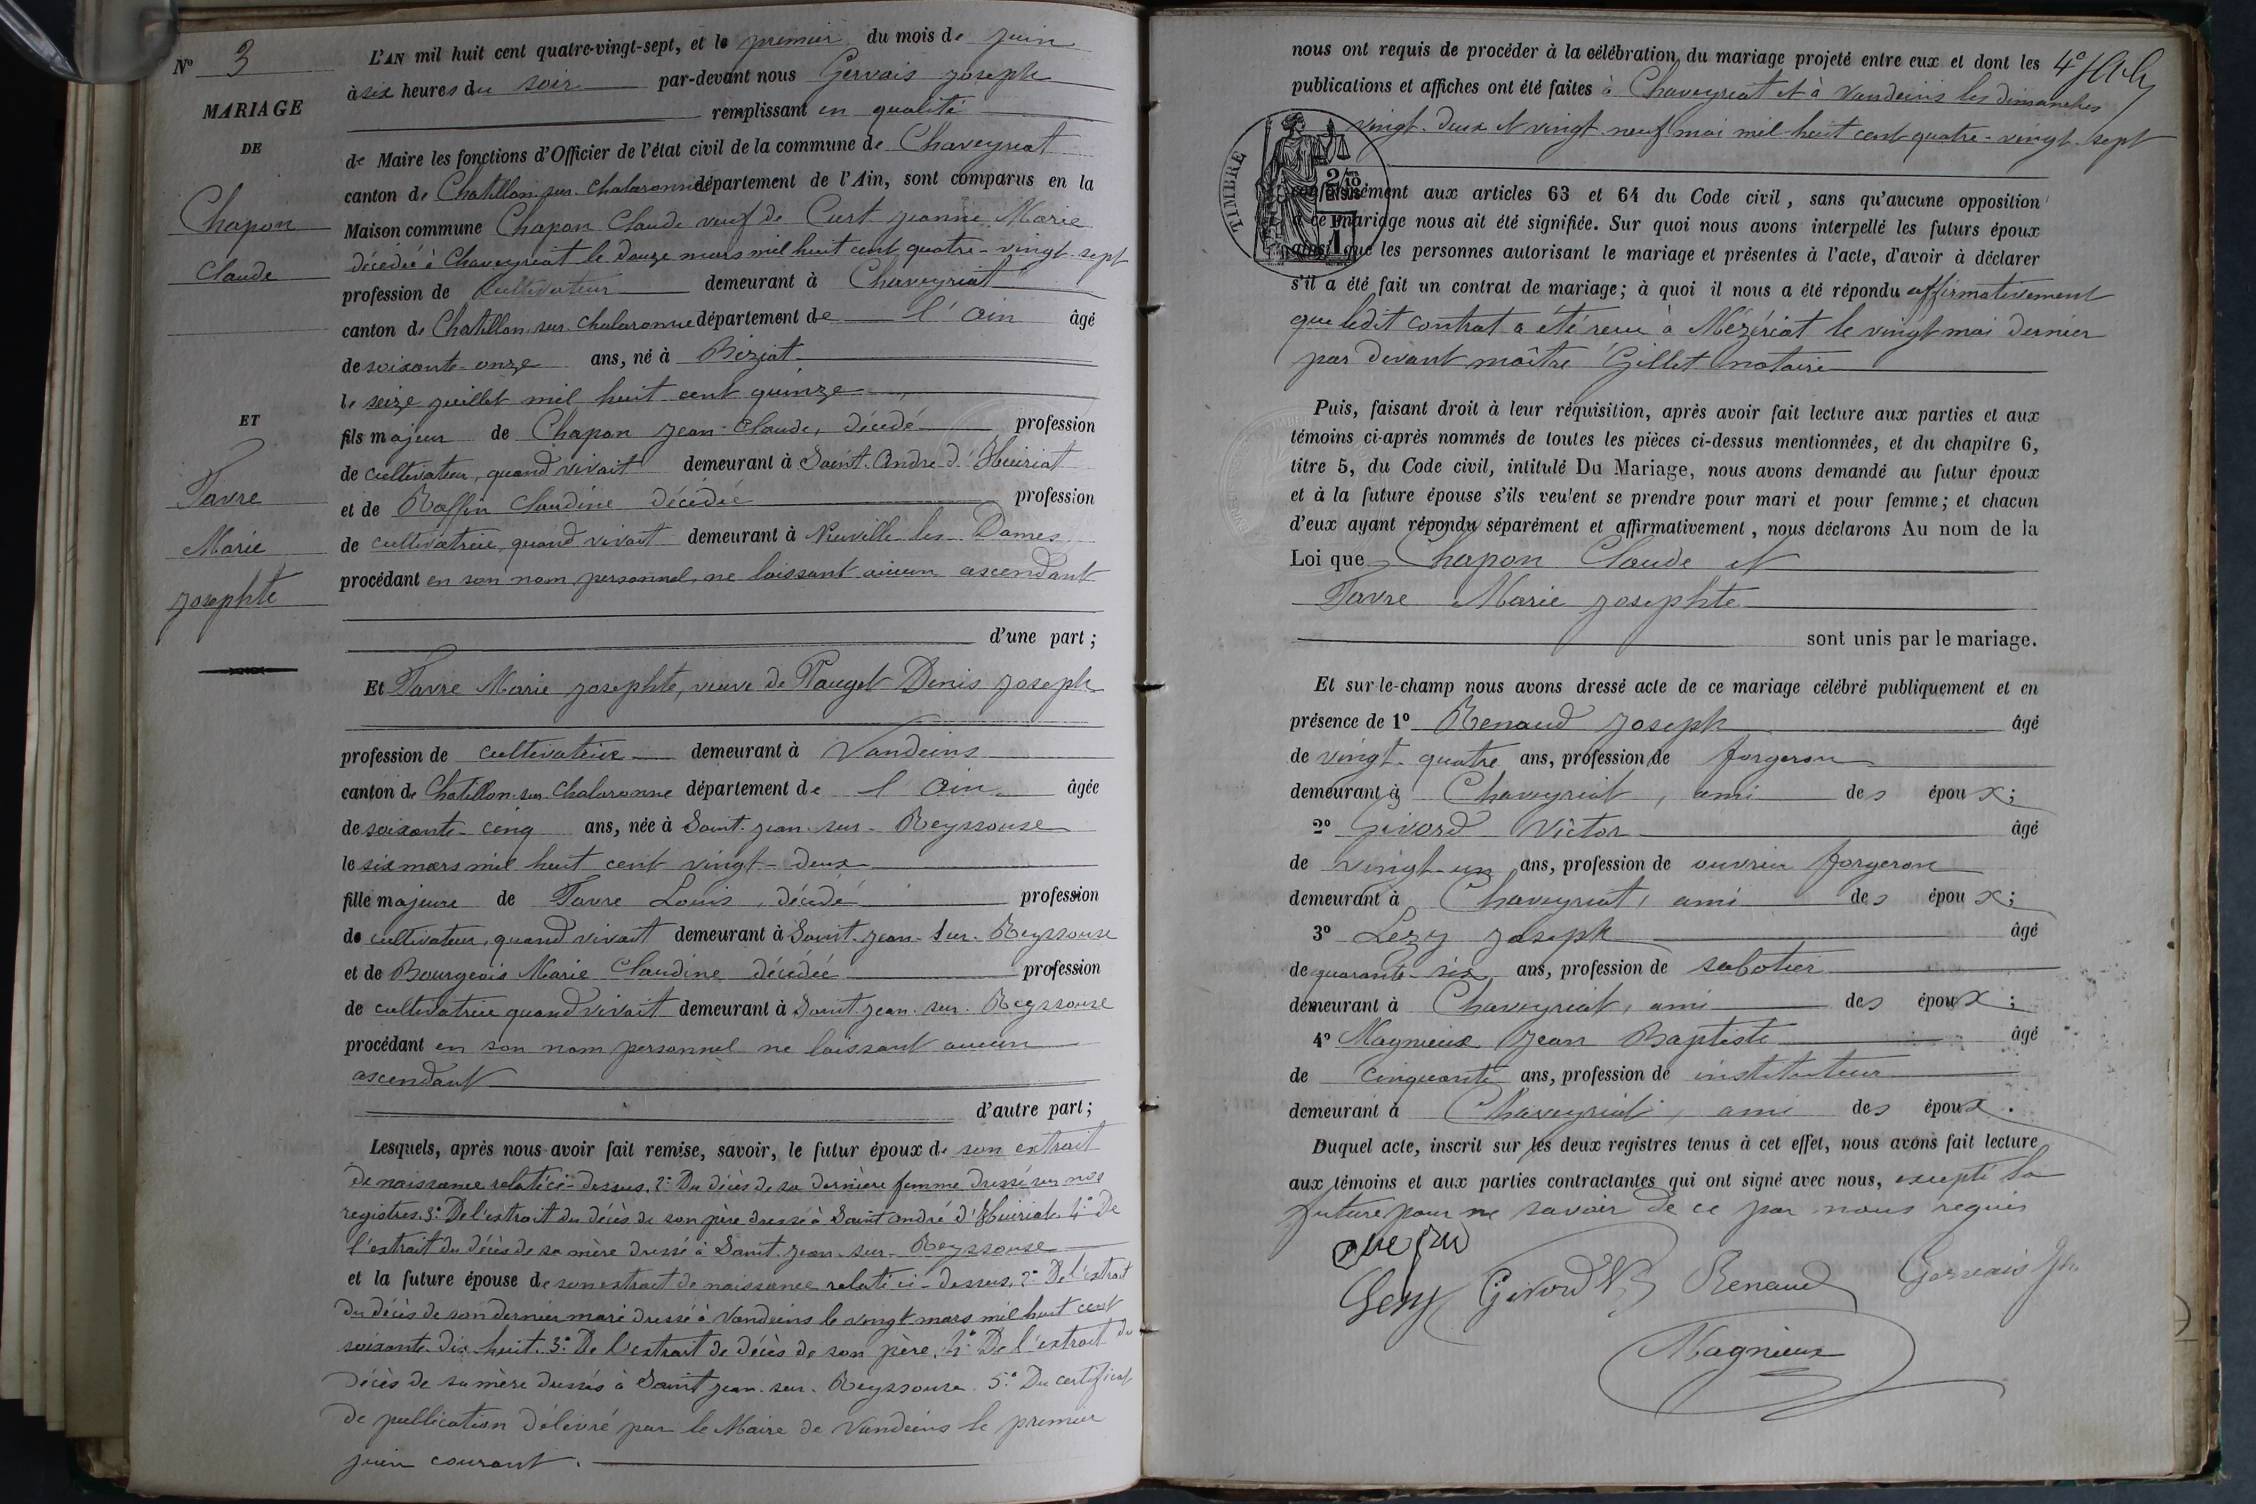 N° 3
MARIAGE
DE
Chapon
Claude
ET
Favre
Marie
Josephte
L'AN mil huit cent quatre-vingt-sept, et le premier du mois de juin
à six heures du soir par-devant nous Gervais Joseph
remplissant en qualité
de Maire les fonctions d'Officier de l'état civil de la commune de Chaveyriat
canton de Chatillon sur Chalaronne département de l'Ain, sont comparus en la
Maison commune Chapon Claude veuf de Curt Jeanne Marie
décédée à Chaveyriat le douze mars mil huit cent quatre-vingt-sept
profession de cultivateur demeurant à Chaveyriat
canton de Chatillon sur Chalaronne département de l'Ain âgé
de soixante-onze ans, né à Biziat
le seize juillet mil huit cent quinze
fils majeur de Chapon Jean-Claude, décédé profession
de cultivateur, quand vivait demeurant à Saint-André d'Huiriat
et de Raffin Claudine décédée profession
de cultivatrice, quand vivait demeurant à Neuville les Dames
procédant en son nom personnel, ne laissant aucun ascendant
d'une part ;
Et Favre Marie Josephte, veuve de Pauget Denis Joseph
profession de cultivatrice demeurant à Vandeins
canton de Chatillon sur Chalaronne département de l'Ain âgée
de soixante-cinq ans, née à Saint-Jean-sur-Reyssouse
le six mars mil huit cent vingt-deux
fille majeure de Favre Louis, décédé profession
de cultivateur, quand vivait demeurant à Saint-Jean-sur-Reyssouse
et de Bourgeois Marie Claudine décédée profession
de cultivatrice quand vivait demeurant à Saint-Jean-sur-Reyssouse
procédant en son nom personnel ne laissant aucun
ascendant
d'autre part ;
Lesquels, après nous avoir fait remise, savoir, le futur époux de son extrait
de naissance relaté ci-dessus, 2° Du décès de sa dernière femme dressé sur nos
registres. 3° De l'extrait du décès de son père dressé à Saint André d'Huiriat. 4° De
l'extrait du décès de sa mère dressé à Saint-Jean-sur-Reyssouse
et la future épouse de son extrait de naissance relaté ci-dessus, 2° De l'extrait
du décès de son dernier mari dressé à Vandeins le vingt mars mil huit cent
soixante-dix-huit. 3° De l'extrait de décès de son père, 4° De l'extrait du
décès de sa mère dressés à Saint Jean-sur-Reyssouse. 5° Du certificat
de publication délivré par le Maire de Vandeins le premier
juin courant.
nous ont requis de procéder à la célébration du mariage projeté entre eux et dont les
publications et affiches ont été faites à Chaveyriat et à Vandeins les dimanches
vingt-deux et vingt-neuf mai mil-huit cent-quatre-vingt-sept
TIMBRE
conformément aux articles 63 et 64 du Code civil, sans qu'aucune opposition
à ce mariage nous ait été signifiée. Sur quoi nous avons interpellé les futurs époux
ainsi que les personnes autorisant le mariage et présentes à l'acte, d'avoir à déclarer
s'il a été fait un contrat de mariage ; à quoi il nous a été répondu affirmativement
que ledit contrat a été reçu à Mézériat le vingt mai dernier
par devant maître Gillet notaire
Puis, faisant droit à leur réquisition, après avoir fait lecture aux parties et aux
témoins ci-après nommés de toutes les pièces ci-dessus mentionnées, et du chapitre 6,
titre 5, du Code civil, intitulé Du Mariage, nous avons demandé au futur époux
et à la future épouse s'ils veulent se prendre pour mari et pour femme ; et chacun
d'eux ayant répondu séparément et affirmativement, nous déclarons Au nom de la
Loi que Chapon Claude et
Favre Marie Josephte
sont unis par le mariage.
Et sur-le-champ nous avons dressé acte de ce mariage célébré publiquement et en
présence de 1° Renaud Joseph âgé
de vingt-quatre ans, profession de forgeron
demeurant à Chaveyriat, ami des époux ;
2° Givord Victor âgé
de vingt-un ans, profession de ouvrier forgeron
demeurant à Chaveyriat, ami des époux ;
3° Lezy Joseph âgé
de quarante-six ans, profession de sabotier
demeurant à Chaveyriat, ami des époux ;
4° Magnieux Jean Baptiste âgé
de cinquante ans, profession de instituteur
demeurant à Chaveyriat, ami des époux.
Duquel acte, inscrit sur les deux registres tenus à cet effet, nous avons fait lecture
aux témoins et aux parties contractantes qui ont signé avec nous, excepté la
future pour ne savoir de ce par nous requis
Lezy Givord V Renaud Gervais Jh
Magnieux